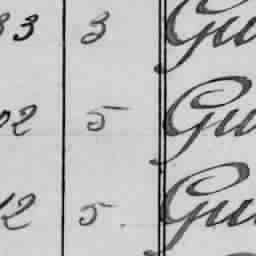 33 3 Gu
02 5 Gu
12 5. Gu